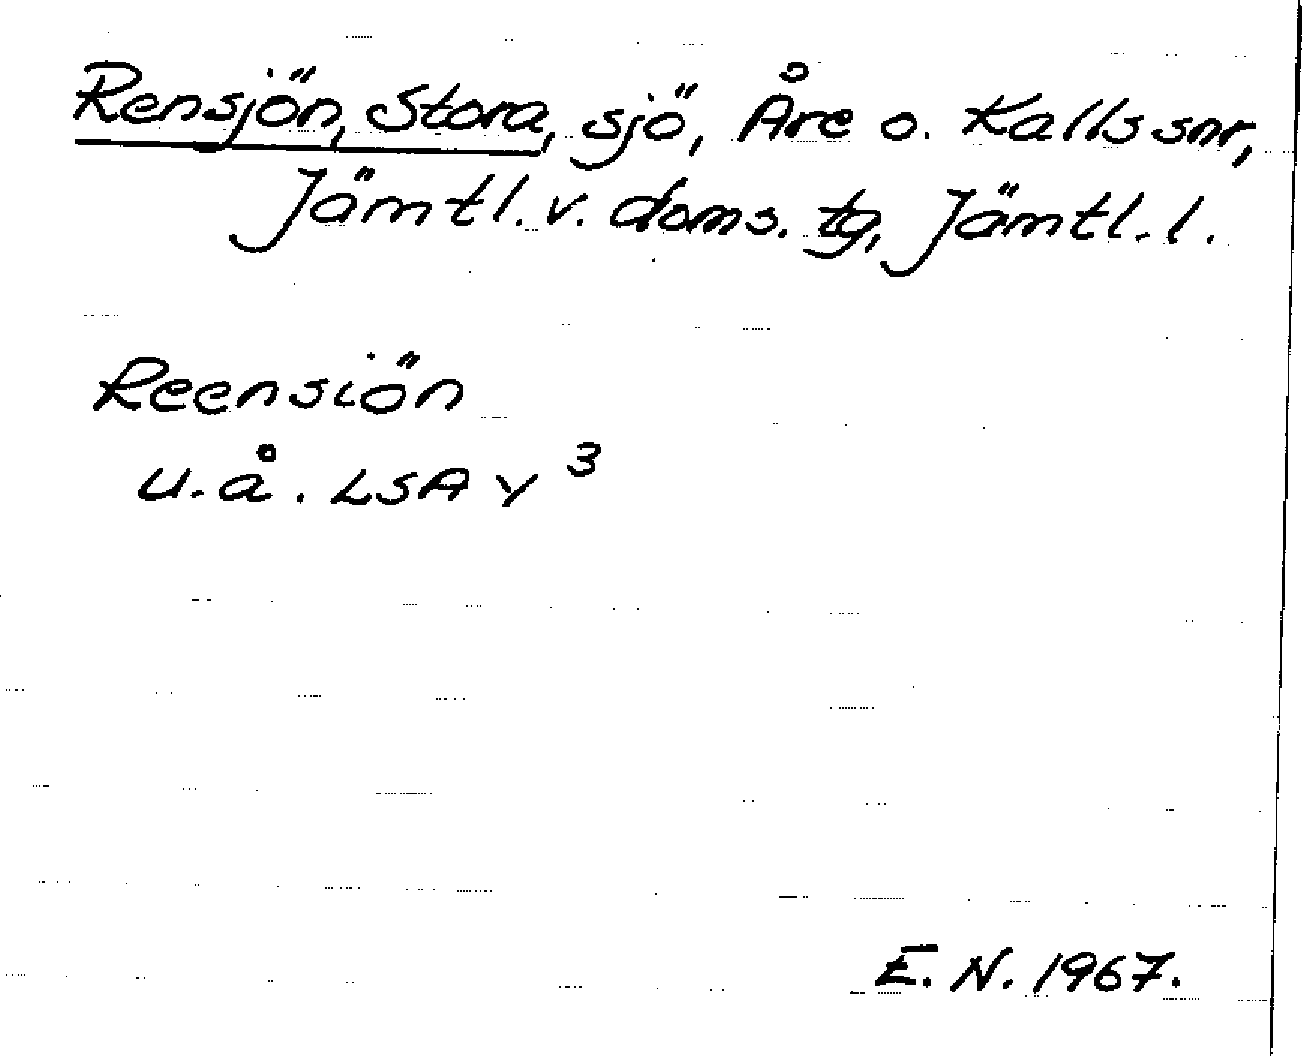 Rensjön, Stora, sjö, Åre o. Kalls snr,
Jämtl. v. doms. tg, Jämtl. l.
Reensiön
u. å. LSA Y 3
E. N. 1967.